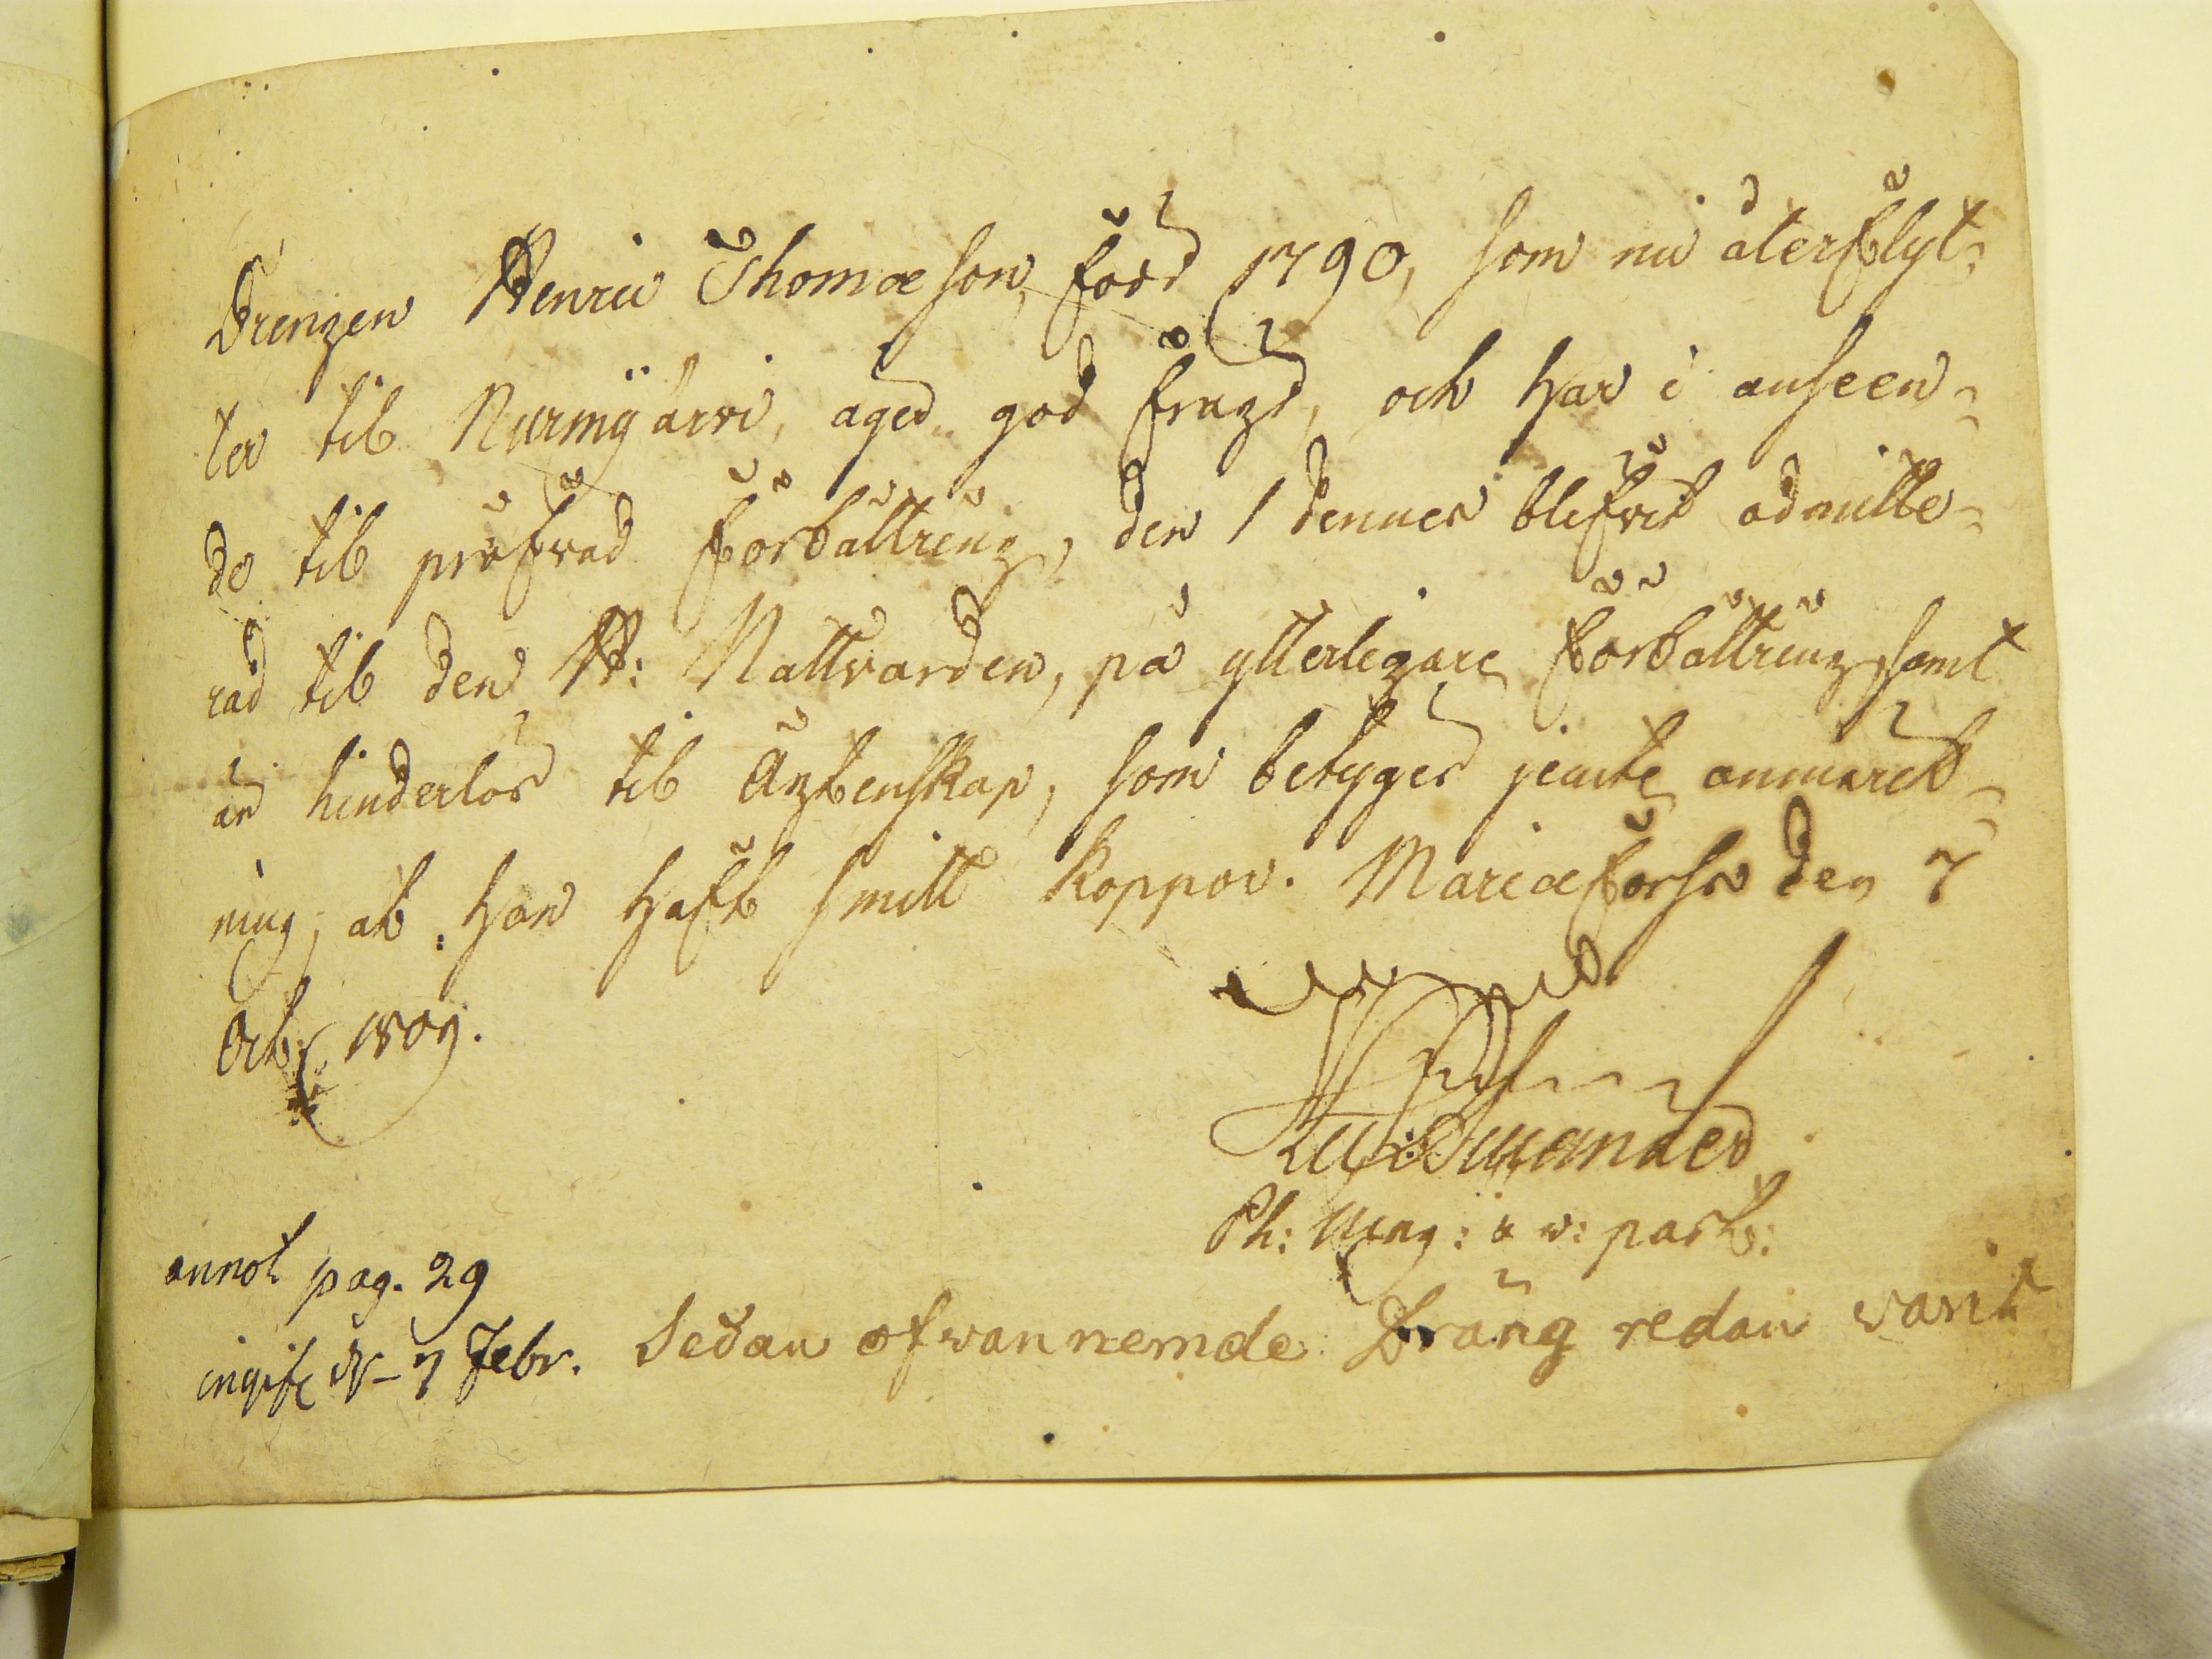 Drengen Henric Thomæson, född 1790, som nu återflyt-
ter til Nurmijärvi, äger god frägd, och har i anseen-
de til pröfvad förbättring, den 1 dennes blifvit admitte-
rad til den H: Nattvarden, på ytterligare förbättring, samt
är hinderlös til Ägtenskap, som betyges jemte anmärck-
ning, at han haft smitt koppor. Mariæforss den 7
Octbr 1809.
Ph: Mag: & v: past:
annot pag. 29
ingifv d. 7 Febr. Sedan ofvannemde Dräng redan varit